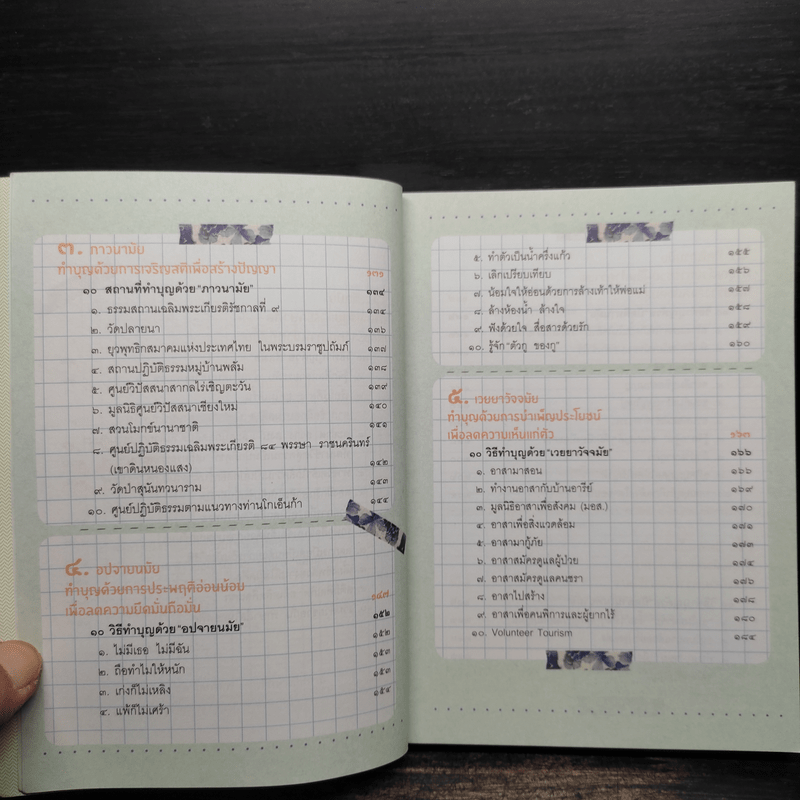 ๓. ภาวนามัย
ทำบุญด้วยการเจริญสติเพื่อสร้างปัญญา ๑๓๑
๑๐ สถานที่ทำบุญด้วย "ภาวนามัย" ๑๓๔
๑. ธรรมสถานเฉลิมพระเกียรติรัชกาลที่ ๙ ๑๓๔
๒. วัดปลายนา ๑๓๖
๓. ยุวพุทธิกสมาคมแห่งประเทศไทย ในพระบรมราชูปถัมภ์ ๑๓๗
๔. สถานปฏิบัติธรรมหมู่บ้านพลัม ๑๓๘
๕. ศูนย์วิปัสสนาสากลไร่เชิญตะวัน ๑๓๙
๖. มูลนิธิศูนย์วิปัสสนาเชียงใหม่ ๑๔๐
๗. สวนโมกข์นานาชาติ ๑๔๑
๘. ศูนย์ปฏิบัติธรรมเฉลิมพระเกียรติ ๘๔ พรรษา ราชนครินทร์
(เขาดินหนองแสง) ๑๔๒
๙. วัดป่าสุนันทวนาราม ๑๔๓
๑๐. ศูนย์ปฏิบัติธรรมตามแนวทางท่านโกเอ็นก้า ๑๔๔
๔. อปจายนมัย
ทำบุญด้วยการประพฤติอ่อนน้อม
เพื่อลดความยึดมั่นถือมั่น ๑๔๗
๑๐ วิธีทำบุญด้วย "อปจายนมัย" ๑๕๒
๑. ไม่มีเธอ ไม่มีฉัน ๑๕๒
๒. ถือทำไมให้หนัก ๑๕๓
๓. เก่งก็ไม่เหลิง ๑๕๓
๔. แพ้ก็ไม่เศร้า ๑๕๔
๕. ทำตัวเป็นน้ำครึ่งแก้ว ๑๕๕
๖. เลิกเปรียบเทียบ ๑๕๖
๗. น้อมใจให้อ่อนด้วยการล้างเท้าให้พ่อแม่ ๑๕๗
๘. ล้างห้องน้ำ ล้างใจ ๑๕๘
๙. ฟังด้วยใจ สื่อสารด้วยรัก ๑๕๙
๑๐. รู้จัก "ตัวกู ของกู" ๑๖๐
๕. เวยยาวัจจมัย
ทำบุญด้วยการบำเพ็ญประโยชน์
เพื่อลดความเห็นแก่ตัว ๑๖๓
๑๐ วิธีทำบุญด้วย "เวยยาวัจจมัย" ๑๖๖
๑. อาสามาสอน ๑๖๖
๒. ทำงานอาสากับบ้านอารีย์ ๑๖๙
๓. มูลนิธิอาสาเพื่อสังคม (มอส.) ๑๗๐
๔. อาสาเพื่อสิ่งแวดล้อม ๑๗๑
๕. อาสามากู้ภัย ๑๗๓
๖. อาสาสมัครดูแลผู้ป่วย ๑๗๔
๗. อาสาสมัครดูแลคนชรา ๑๗๖
๘. อาสาไปสร้าง ๑๗๘
๙. อาสาเพื่อคนพิการและผู้ยากไร้ ๑๘๐
๑๐. Volunteer Tourism ๑๘๔